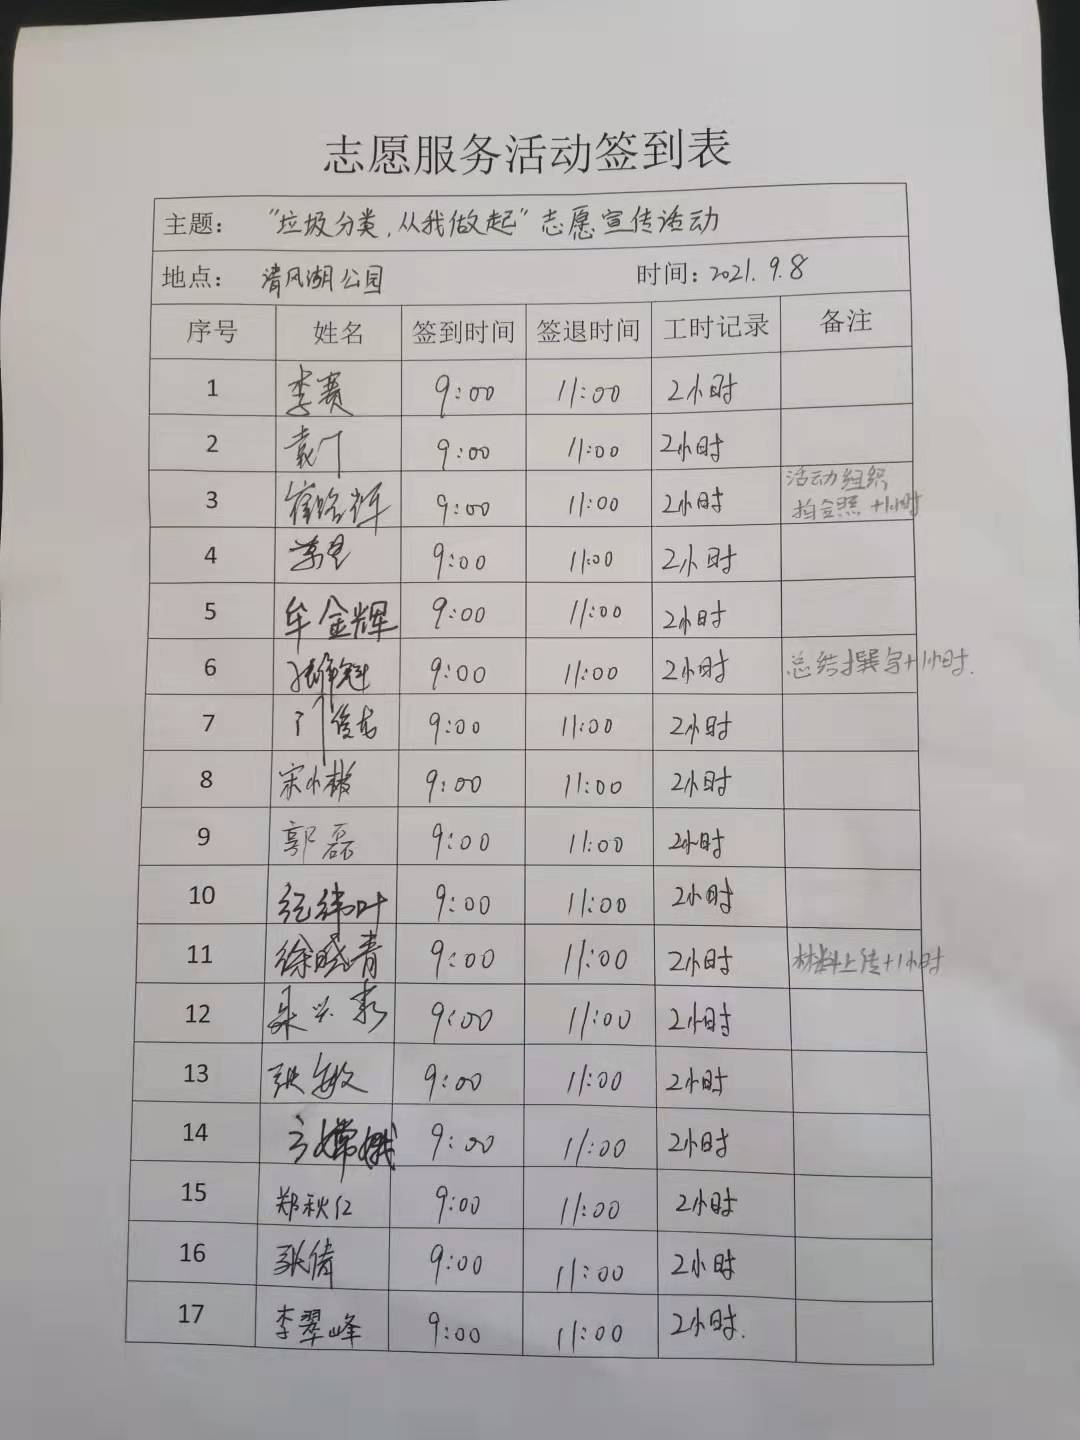 志愿服务活动签到表
主题： “垃圾分类，从我做起”志愿宣传活动
地点： 清风湖公园 时间：2021.9.8
序号 姓名 签到时间 签退时间 工时记录 备注
1 李赛 9:00 11:00 2小时
2 9:00 11:00 2小时
活动组织
3 9:00 11:00 2小时 拍合照+1小时
4 9:00 11:00 2小时
5 牟金辉 9:00 11:00 2小时
6 9:00 11:00 2小时 总结撰写+1小时.
7 9:00 11:00 2小时
8 宋小彬 9:00 11:00 2小时
9 郭磊 9:00 11:00 2小时
10 纪纬叶 9:00 11:00 2小时
11 徐晓青 9:00 11:00 2小时 材料上传+1小时
12 9:00 11:00 2小时
13 张敏 9:00 11:00 2小时
14 9:00 11:00 2小时
15 郑秋红 9:00 11:00 2小时
16 张倩 9:00 11:00 2小时
17 李翠峰 9:00 11:00 2小时.